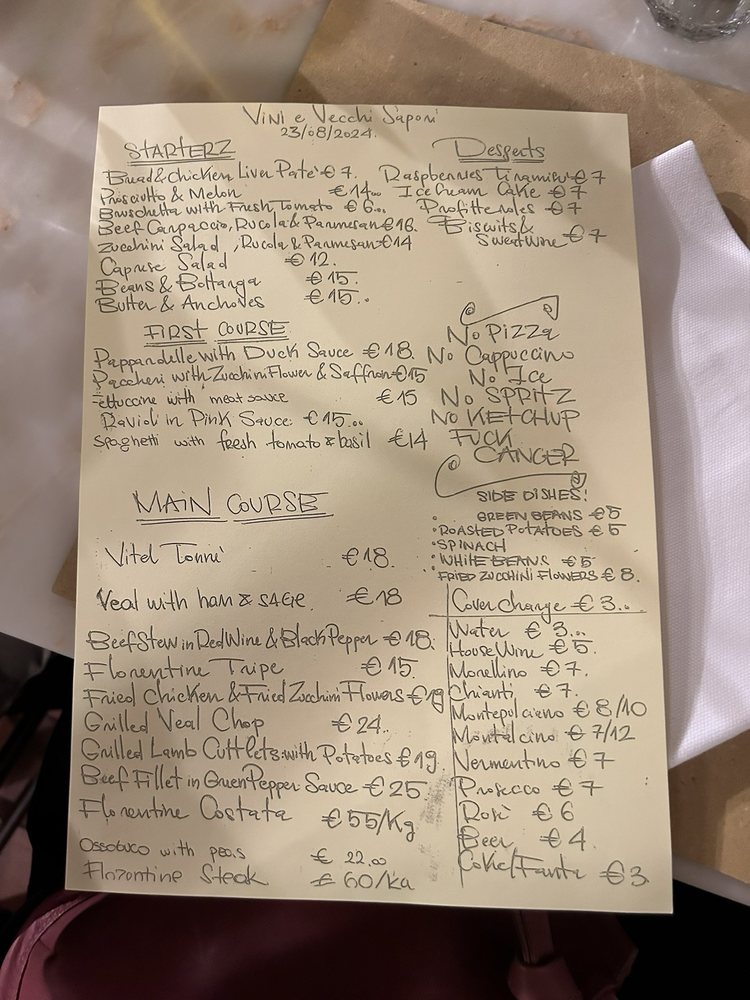 Vini e Vecchi Sapori
23/08/2024.
STARTERZ
Bread & chicken Liver Pate' € 7.
Prosciutto & Melon € 14..
Bruschetta with Fresh Tomato € 6...
Beef Carpaccio, Rucola & Parmesan €16.
Zucchini Salad, Rucola & Parmesan €14
Caprese Salad € 12.
Beans & Bottarga € 15.
Butter & Anchoves € 15..
FIRST COURSE
Pappardelle with Duck Sauce € 18.
Paccheri with Zucchini Flower & Saffron €15
Fettuccine with meat sauce € 15
Ravioli in Pink Sauce: € 15...
Spaghetti with fresh tomato & basil €14
MAIN COURSE
Vitel Tonnè € 18.
Veal with ham & SAGE. € 18
Beef Stew in Red Wine & Black Pepper € 18.
Florentine Tripe € 15.
Fried Chicken & Fried Zucchini Flowers € 19
Grilled Veal Chop € 24..
Grilled Lamb Cuttlets with Potatoes € 19.
Beef Fillet in Green Pepper Sauce € 25.
Florentine Costata € 55/Kg
Ossobuco with peas € 22,00
Florentine Steak € 60/KG
Desserts
Raspberries Tiramisu € 7
Ice Cream Cake € 7
Profitteroles € 7
Biscuits &
Sweet Wine € 7
No Pizza
No Cappuccino
No Ice
No SPRITZ
NO KETCHUP
FUCK
CANCER
SIDE DISHES!
GREEN BEANS € 5
• ROASTED POTATOES € 5
• SPINACH
• WHITE BEANS € 5
• FRIED ZUCCHINI FLOWERS € 8.
Cover charge € 3...
Water € 3...
House Wine € 5.
Morellino € 7.
Chianti € 7.
Montepulciano € 8/10
Montalcino € 7/12
Vermentino € 7
Prosecco € 7
Rosè € 6
Beer € 4.
Coke/Fanta € 3.